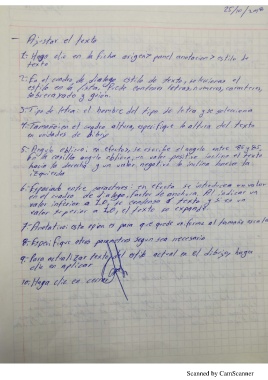 25/10/2016
- Ajustar el texto
1- Haga clic en la ficha origen > panel anotacion > estilo de
texto
2- En el cuadro de dialogo estilo de texto, seleccione el
estilo en la lista. Puede contener letras, numeros, caracteres,
subrayado y guion.
3- Tipo de letra: el nombre del tipo de letra que selecciona
4- Tamaño: en el cuadro altura, especifique la altura del texto
en unidades de dibujo
5- Angulo oblicuo: en efectos, se escribe el angulo entre -85 y 85,
en la casilla angulo oblicuo, un valor positivo inclina el texto
hacia la derecha y un valor negativo lo inclina hacia la
izquierda
6- Espaciado entre caracteres: En efecto se introduce un valor
en el cuadro de dialogo factor de anchura. Al indicar un
valor inferior a 1.0, se condensa el texto, y si es un
valor superior a 1.0, el texto se expande.
7- Anotativa: esta opcion es para que quede uniforme al tamaño escala
8- Especifique otros parametros segun sea necesario
9- Para actualizar texto del estilo actual en el dibujo, haga
clic en aplicar
10- Haga clic en cerrar
Scanned by CamScanner